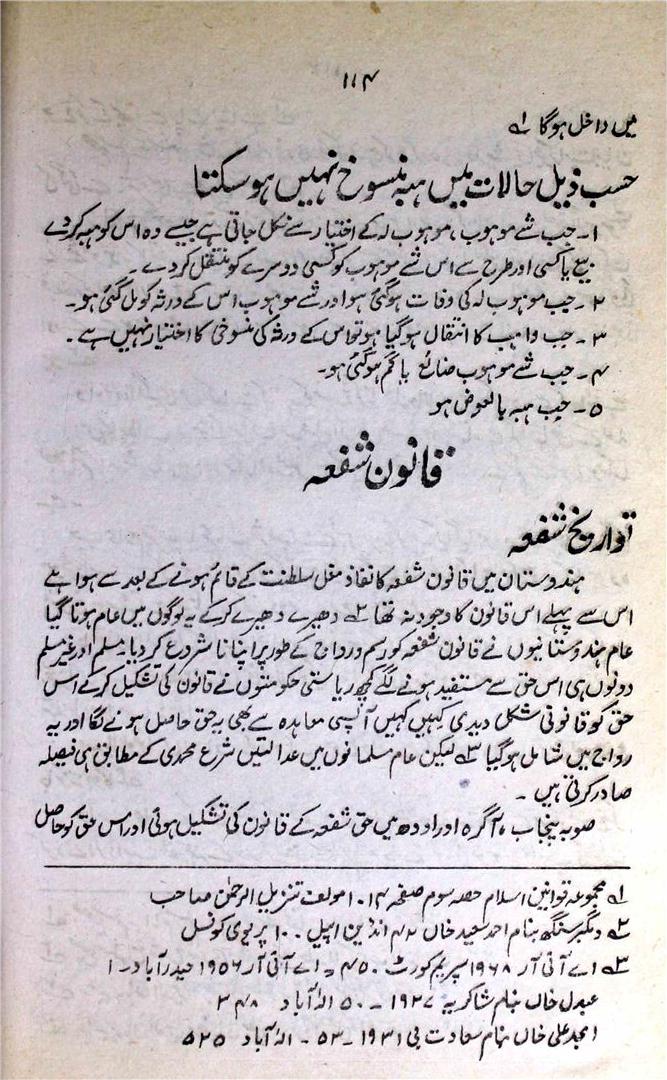 ۱۱۴
میں داخل ہوگا ؎۱
حسب ذیل حالات میں ہبہ منسوخ نہیں ہو سکتا
۱۔ جب شے موہوب، موہوب لہ کے اختیار سے نکل جاتی ہے جیسے وہ اس کو ہبہ کردے
بیع یا کسی اور طرح سے اس شے موہوب کو کسی دوسرے کو منتقل کر دے ۔
۲۔ جب موہوب لہ کی وفات ہوگئی ہو اور شے موہوب اس کے ورثہ کو مل گئی ہو۔
۳۔ جب واہب کا انتقال ہو گیا ہو تو اس کے ورثہ کی منسوخی کا اختیار نہیں ہے ۔
۴۔ جب شے موہوب ضائع یا گم ہو گئی ہو۔
۵۔ جب ہبہ بالعوض ہو
قانون شفعہ
تواریخ شفعہ
ہندوستان میں قانون شفعہ کا نفاذ مغل سلطنت کے قائم ہونے کے بعد سے ہوا ہے
اس سے پہلے اس قانون کا وجود نہ تھا ؎۲ دھیرے دھیرے کرکے یہ لوگوں میں عام ہوتا گیا
عام ہندوستانیوں نے قانون شفعہ کو رسم و رواج کے طور پر اپنانا شروع کر دیا۔ مسلم اور غیر مسلم
دونوں ہی اس حق سے مستفید ہونے لگے کچھ ریاستی حکومتوں نے قانون کی تشکیل کر کے اس
حق کو قانونی شکل دیدی کہیں کہیں آپسی معاہدہ سے بھی یہ حق حاصل ہونے لگا اور یہ
رواج میں شامل ہو گیا ؎۳ لیکن عام مسلمانوں میں عدالتیں شرع محمدی کے مطابق ہی فیصلہ
صادر کرتی ہیں ۔
صوبہ پنجاب ، آگرہ اور اودھ میں حق شفعہ کے قانون کی تشکیل ہوئی اور اس حق کو حاصل
؎۱ مجموعہ قوانین اسلام حصہ سوم صفحہ ۱۰۱۴ مولف تنزیل الرحمٰن صاحب
؎۲ دگمبر سنگھ بنام احمد سعید خاں ۴۲ انڈین اپیل ۔ ۱۰ پریوی کونسل
؎۳ اے آئی آر ۱۹۶۸ سپریم کورٹ ۴۵۰ ۔ اے آئی آر ۱۹۵۶ حیدرآباد۔۱
عبدل خاں بنام شاکریہ ۱۹۲۷ ۔ ۵۰ الہٰ آباد ۳۴۸
امجد علی خاں بنام سعادت بی ۱۹۳۱ ۔ ۵۳ ۔ الہٰ آباد ۵۲۵